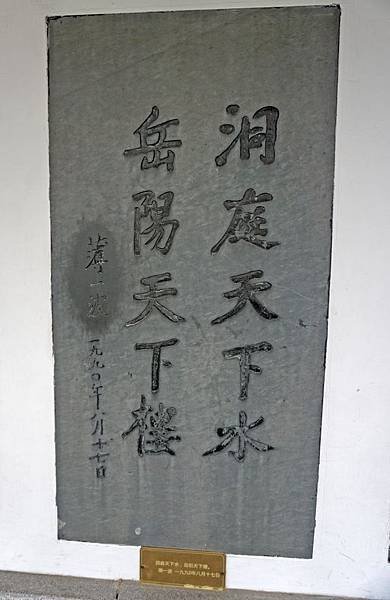 洞庭天下水
岳陽天下樓
薄一波
一九九〇年八月十七日
洞庭天下水,岳阳天下楼。
薄一波 一九九〇年八月十七日